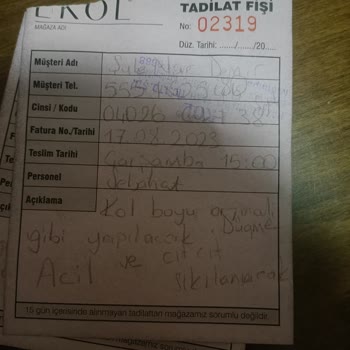 EKOL
MAĞAZA ADI
TADİLAT FİŞİ
No: 02319
Düz. Tarihi: ....../....../20.....
Müşteri Adı
Müşteri Tel. 555
Cinsi / Kodu 04026 38
Fatura No./Tarihi 17.08.2023
Teslim Tarihi Çarşamba 15:00
Personel Sebahat
Açıklama Kol boyu orjinali
gibi yapılacak. Düğme
ve çıtçıt
Acil sıkılanarak
15 gün içerisinde alınmayan tadilattan mağazamız sorumlu değildir.